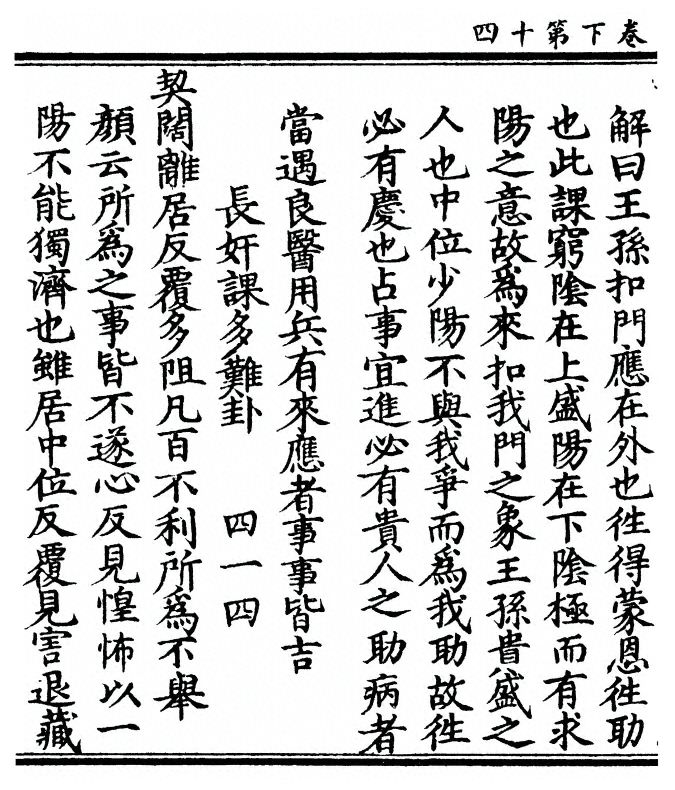 卷下第十四
解曰王孫扣門應在外也徃得蒙恩徃助
也此課窮陰在上盛陽在下陰極而有求
陽之意故為來扣我門之象王孫貴盛之
人也中位少陽不與我爭而為我助故徃
必有慶也占事宜進必有貴人之助病者
當遇良醫用兵有來應者事事皆吉
長奸課多難卦 四一四
契闊離居反覆多阻凡百不利所為不舉
顏云所為之事皆不遂心反見惶怖以一
陽不能獨濟也雖居中位反覆見害退藏